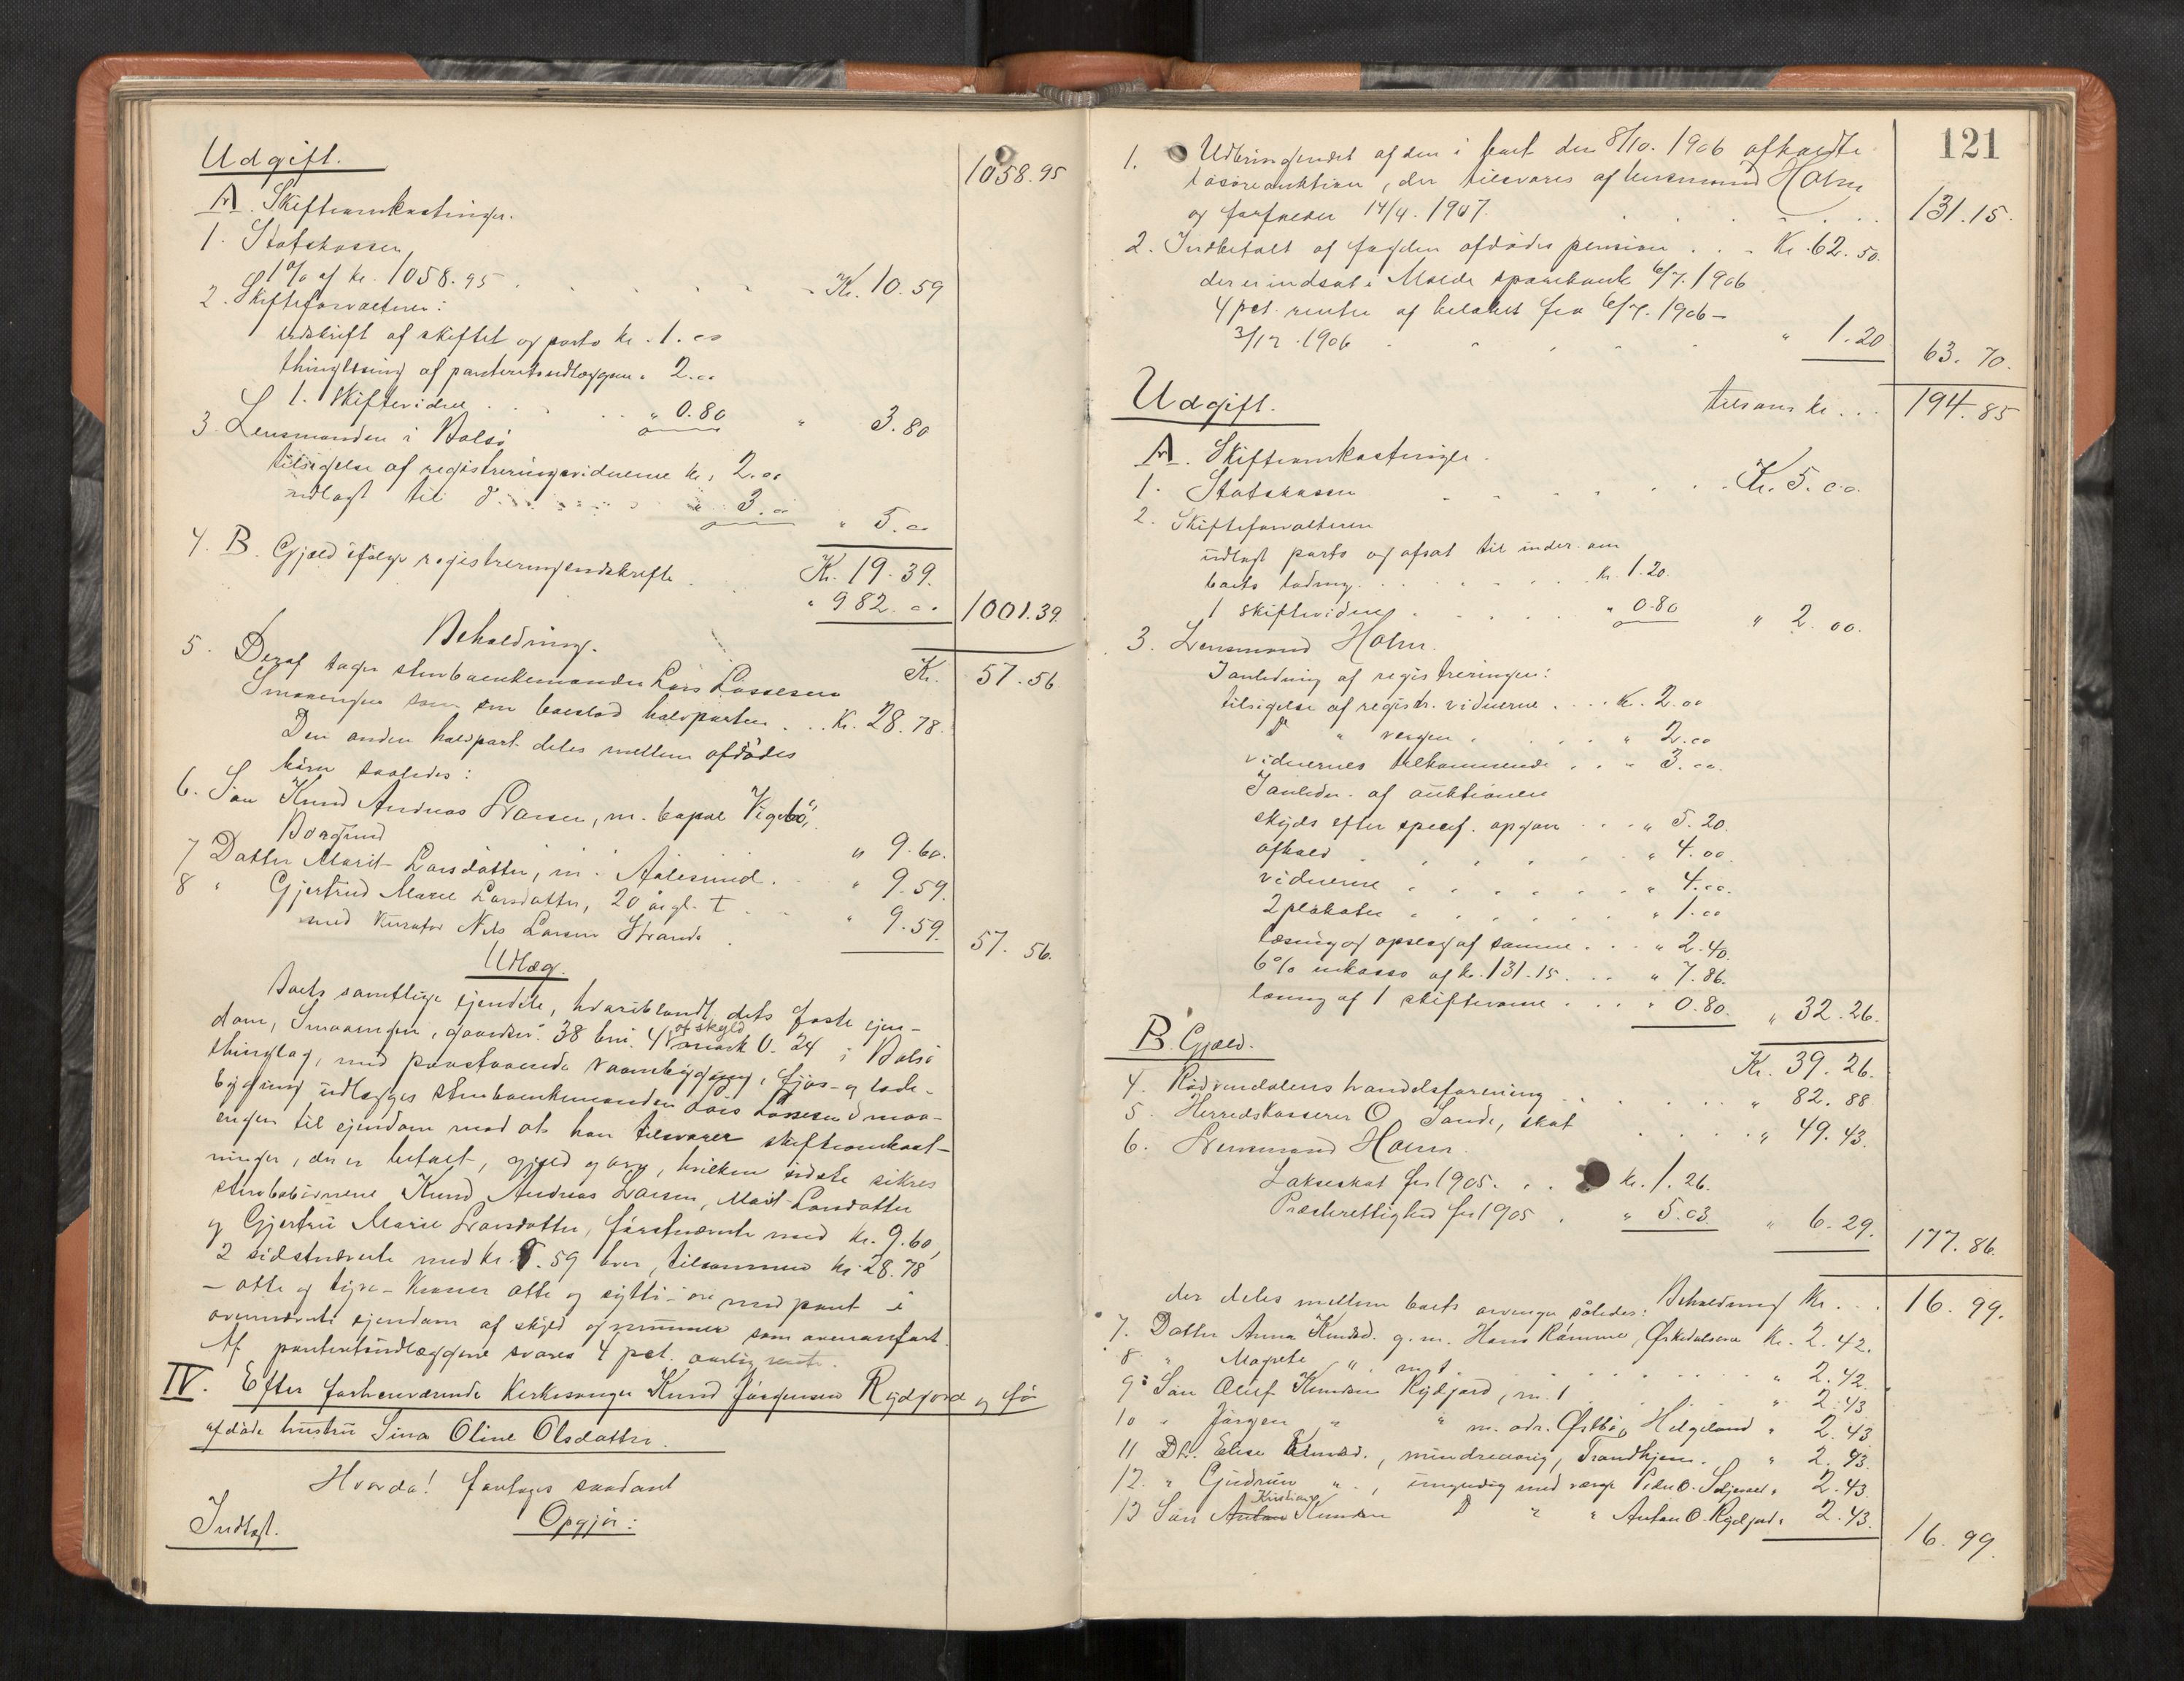 Udgift.
1058.95
A. Skifteomkostninger.
1. Statskassen
1 % af kr. 1058.95 . . . . . Kr. 10.59
2. Skifteforvalteren:
udskrift af skiftet og porto kr. 1.00
thinglesning af panteretsudlæggene " 2.00
1. Skiftevidne . . . " 0.80 " 3.80
3. Lensmanden i Bolsø
tilsigelse af registreringsvidnerne kr. 2.00
udlagt til do " 3.00 " 5.00
Kr. 19.39.
4. B. Gjæld ifølge registreringsudskrifte . " 982.00 1001.39.
Beholdning. Kr. 57.56
5. Deraf tager sterbo enkemanden Lars Larsen
Smaaengen som sin boeslod halvparten . . . Kr. 28.78.
Den anden halvpart deles mellem afdødes
børn saaledes:
6. Søn Knud Andreas Larsen, m.
Borgund " 9.60.
7 Datter Marit Larsdatter, m. Aalesund. . " 9.59.
8 " Gjertrud Marie Larsdatter, 20 år gl. t . . " 9.59.
med kurator Nils Larsen Strande . 57.56.
Udlæg.
Boets samtlige ejendele, hvoriblandt dets faste ejen-
dom, Smaaengen, gaardsnr. 38 brn. 4 af skyld mark 0.24 i Bolsø
thinglag, med paastaaende vaanbygging, fjøs- og lade-
bygning udlægges sterboenkemanden Lars Larsen Smaa-
engen til ejendom mod at han tilsvarer skifteomkost-
ninger, der er betalt, gjæld og arv, hvilken sidste sikres
sterbobørnene Knud Andreas Larsen, Marit Larsdatter
og Gjertru Marie Larsdatter, førstnævnte med kr. 9.60,
2 sidstnævnte med kr. 9.59 hver, tilsammen kr. 28.78
- otte og tyve - kroner otte og sytti - øre med pant i
ovennævnte ejendom af skyld og nummer som ovenanført.
Af panteretsudlæggene svares 4 pct. aarlig rente.
IV. Efter forhenværende kirkesanger Knud Jørgensen Rydjord og før
afdøde hustru Sina Oline Olsdatter.
Hvorda! foretoges saadant
Indtægt. Opgjør:
121
1. Udbringendet af den i boet den 8/10. 1906 afholdte
løsøreauktion, der tilsvares af lensmand Holm
og forfalder 14/4. 1907. . . . . . . 131.15.
2. Indbetalt af fogden afdødes pension . . . Kr. 62.50.
der er indsat i Molde sparebank 6/7. 1906
4 pct. rente af beløbet fra 6/7. 1906 -
3/12. 1906 . . . . . " 1.20 63.70.
Udgift. tilsam kr. . . 194.85
A. Skifteomkostninger.
1. Statskassen . . . . . . Kr. 5.00.
2. Skifteforvalteren
udlagt porto og afsat til inder. om
boets lodning. . . . . . . kr. 1.20.
1 skiftevidne . . . . . " 0.80 " 2.00.
3. Lensmand Holm.
I anledning af registreringen:
tilsigelse af registr. vidnerne . . . . kr. 2.00
Do " vergen . . . . . " 2.00
vidnernes tilkommende . . " 3.00.
I anledn. af auktionen
skyds efter specif. opgave . . . " 5.20.
afhold . . . . . . . " 4.00.
vidnerne . . . . . . . " 4.00.
2 plakater . . . . . . " 1.00
læsning og opslag af samme . . . " 2.40.
6 % inkasso af kr. 131.15. . . . " 7.86.
læsning af 1 . . . . " 0.80. " 32.26.
B. Gjæld. Kr. 39.26.
4. Rødvendalens handelsforening . . . . . . " 82.88
5. Herredskasserer O. Sande, skat . . . . " 49.43.
6. Lensmand Holm
Lakseskat for 1905. . . . kr. 1.26.
Presterettighed for 1905 . " 5.03. " 6.29. 177.86.
Beholdning Kr. . . . 16.99.
der deles mellem boets arvinger således:
7. Datter Anna Knudsd. g. m. Hans Ramme, Ørkedalsøra Kr. 2.42.
8. " Magrete " . m. t . . . . . . . . . " 2.42.
9. Søn Oluf Knudsen Rydjord, m. t . . . . . " 2.43
10 " Jørgen " " m. adr. Helgeland " 2.43
11 Dtr. Elise Knudsd., mindreaarig, Trondhjem. " 2.43.
12. " Gudrun " . , umyndig med verge Peder O. " 2.43.
13 Søn Kristian Knudsen D " " Anton O. Rydjord " 2.43. 16.99.